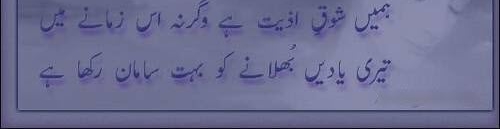 ہمیں شوقِ اذیت ہے وگرنہ اس زمانے میں
تیری یادیں بُھلانے کو بہت سامان رکھا ہے